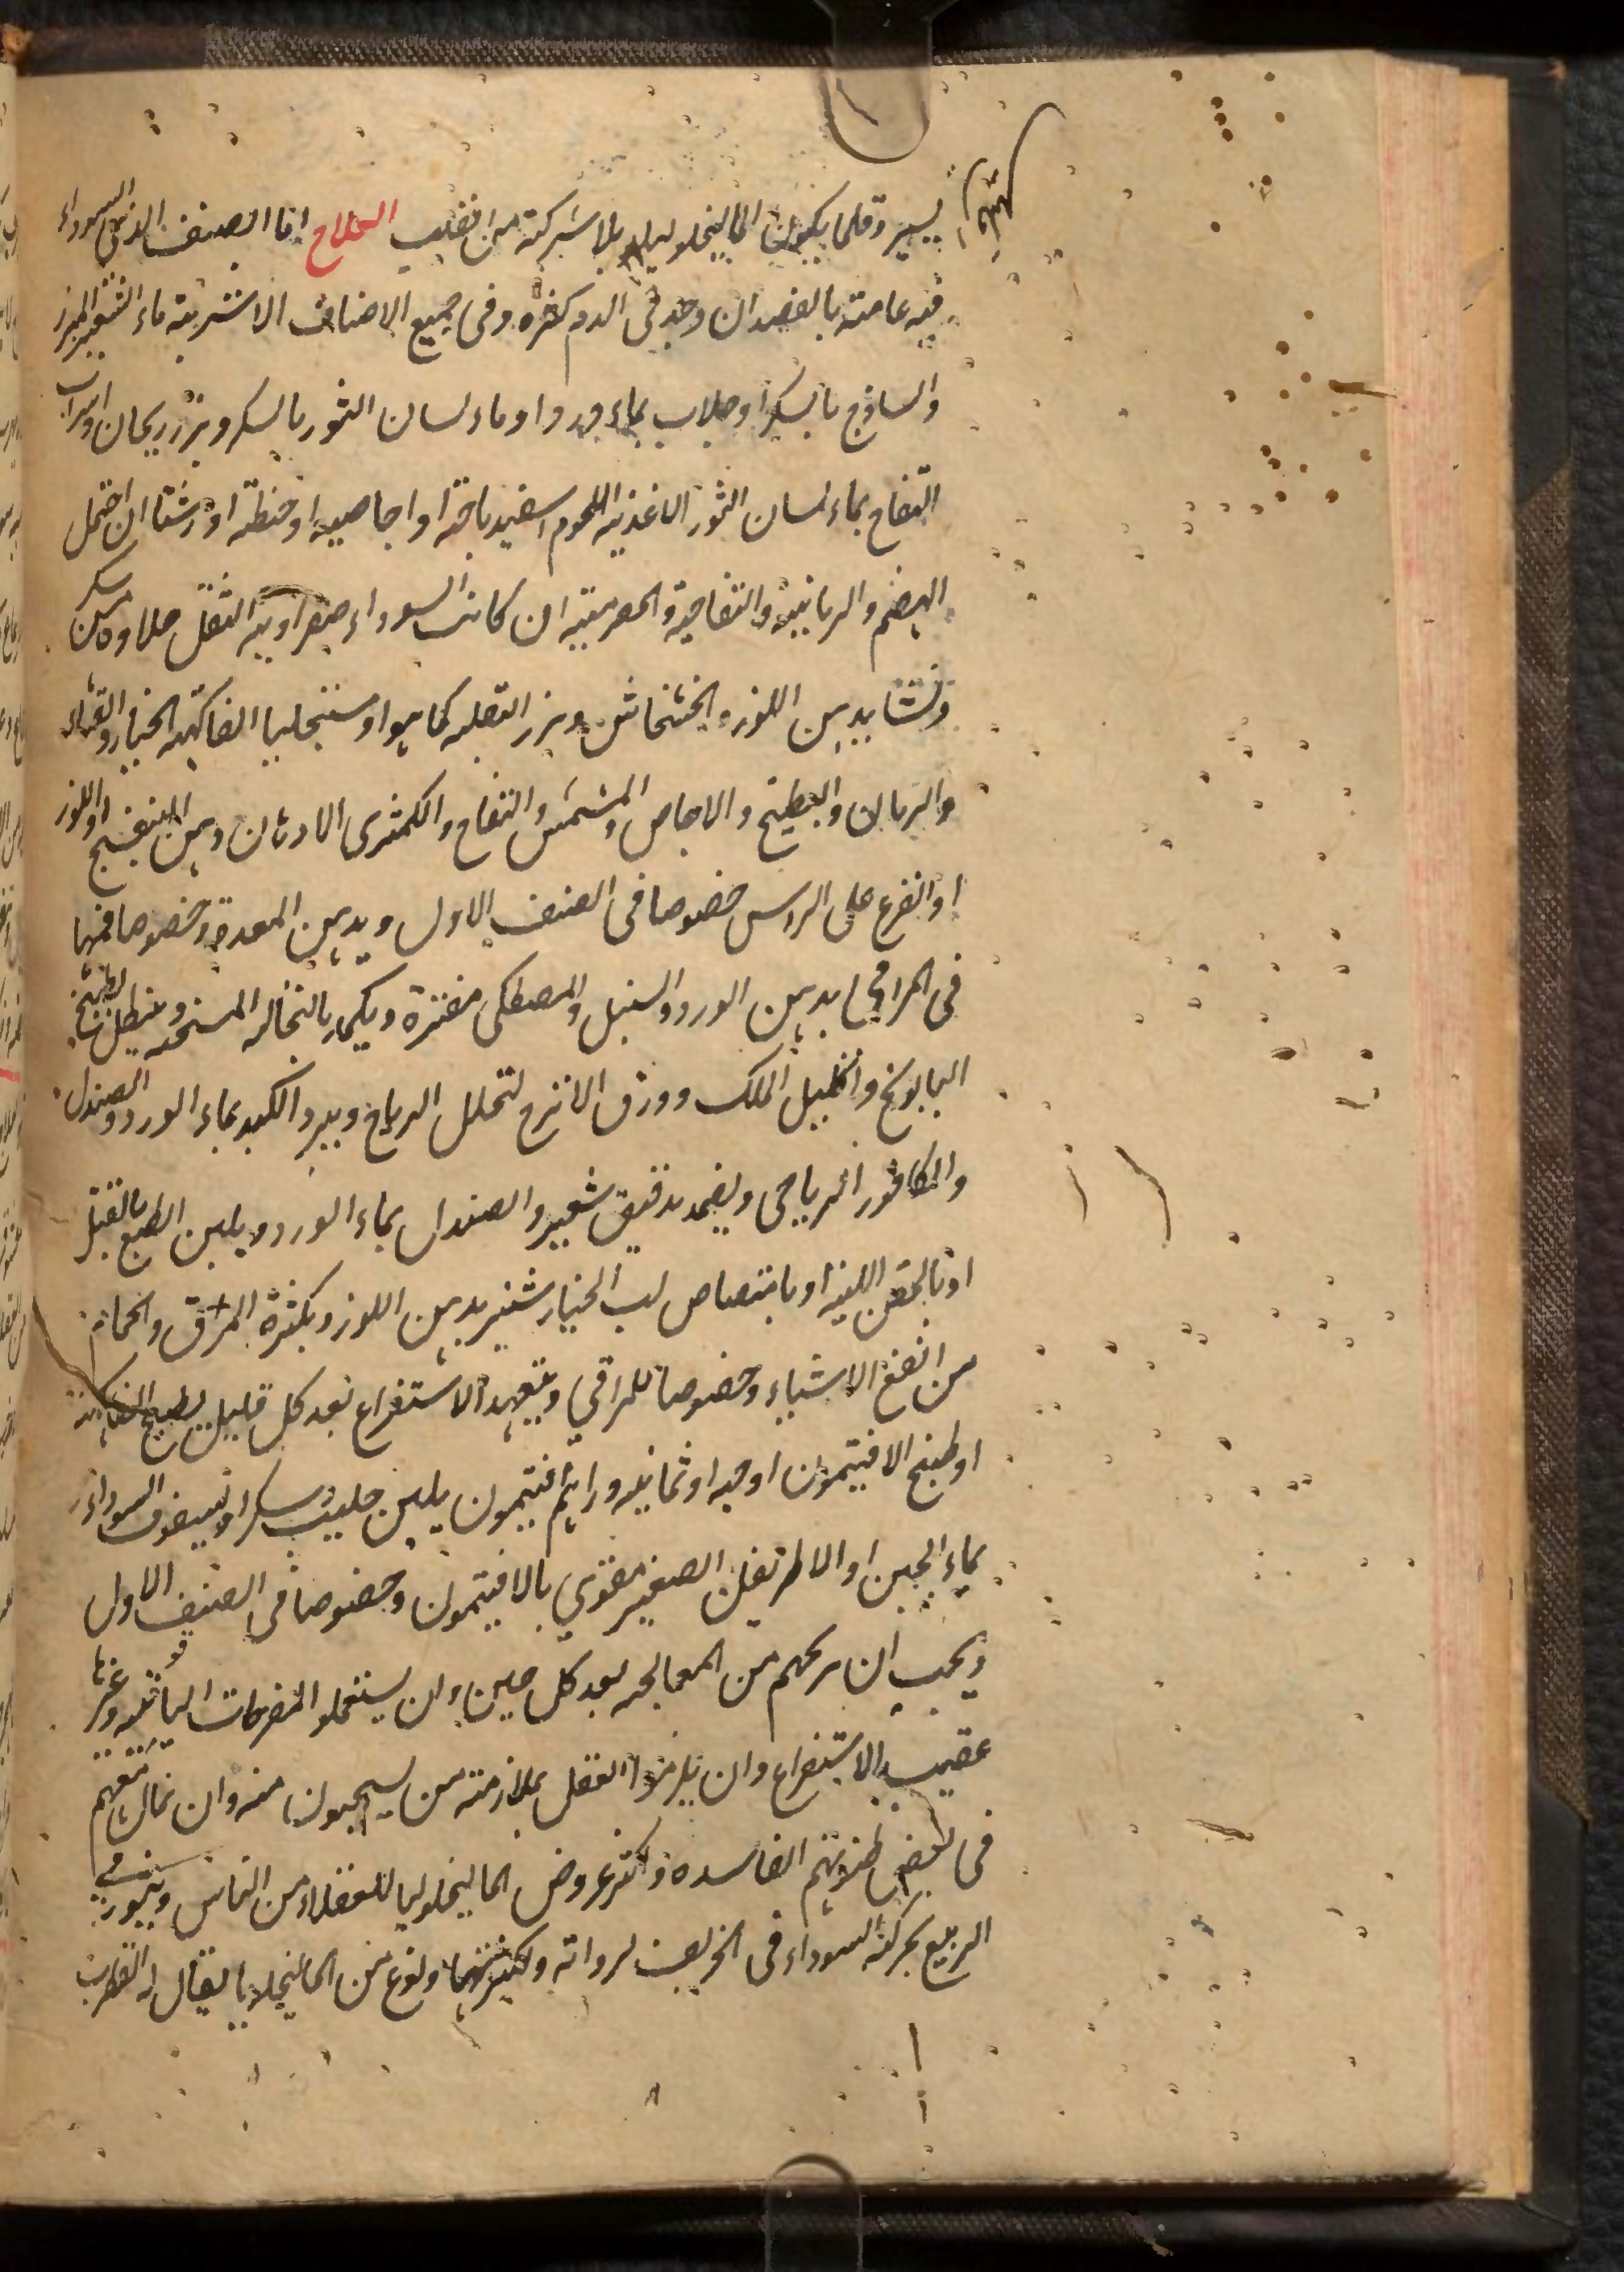 يسير وقلما يكون الماليخوليا بلا شركة من القلب العلاج اما الصنف الذي السوداء
فيه عامة بالفصد ان وجد في الدم كثره وفى جميع الاصناف الاشربة ماء الشعير المبزر
والساذج بالسكر او جلاب بماء ورد او ماء لسان الثور بالسكر وبزر ريحان او شراب
التفاح بماء لسان الثور الاغذيه اللحوم اسفيدباجة او اجاصيه او حنطته او رشتا ان احتمل
الهضم والرمانية والتفاحية والحصرمية ان كانت السوداء صفراويه النقل حلاوه من سكر
ونشا بدهن اللوز والخشخاش وبزر البقله كما هو او مستحلبا الفاكهه الخيار والقثاء
والرمان والبطيخ والاجاص والمشمش والتفاح والكمثرى الادهان دهن البنفسج او اللوز
او القرع على الراس خصوصا فى الصنف الاول ويدهن المعدة وخصوصا فمها
فى المراقي بدهن الورد والسنبل والمصطكى مفترة ويكمد بالنخاله المسخنه وينطل بطبيخ
البابونج واكليل الملك وورق الاترج لتحلل الرياح ويبرد الكبد بماء الورد والصندل
والكافور الرياحى ويضمد بدقيق شعير والصندل بماء الورد ويلين الطبع بالفتل
او بالحقن اللينه او بامتصاص لب الخيار شنبر بدهن اللوز وبكثرة المرق والحمام
من انفع الاشياء وخصوصا للمراقي ويتعهد الاستفراغ بعد كل قليل بطبيخ الفاكهة
او طبيخ الافيتمون او حبه او ثمانيه دراهم افتيمون بلبن حليب وسكر او بسفوف السوداء
بماء الجبن او الاطريفل الصغير مقوي بالافيتمون وخصوصا فى الصنف الاول
ويجب ان يريحهم من المعالجه بعد كل حين وان يستعملو المفرحات الياقوتيه وغيرها
عقيب الاستفراغ وان يلزموا العقل بملازمة من يستحيون منه وان يمال معهم
فى بعض ظنونهم الفاسده واكثر عروض الماليخوليا للعقلاء من الناس ويثور في
الربيع بحركة السوداء فى الخريف لرداته وكثرتها ونوع من الماليخوليا يقال له القطرب